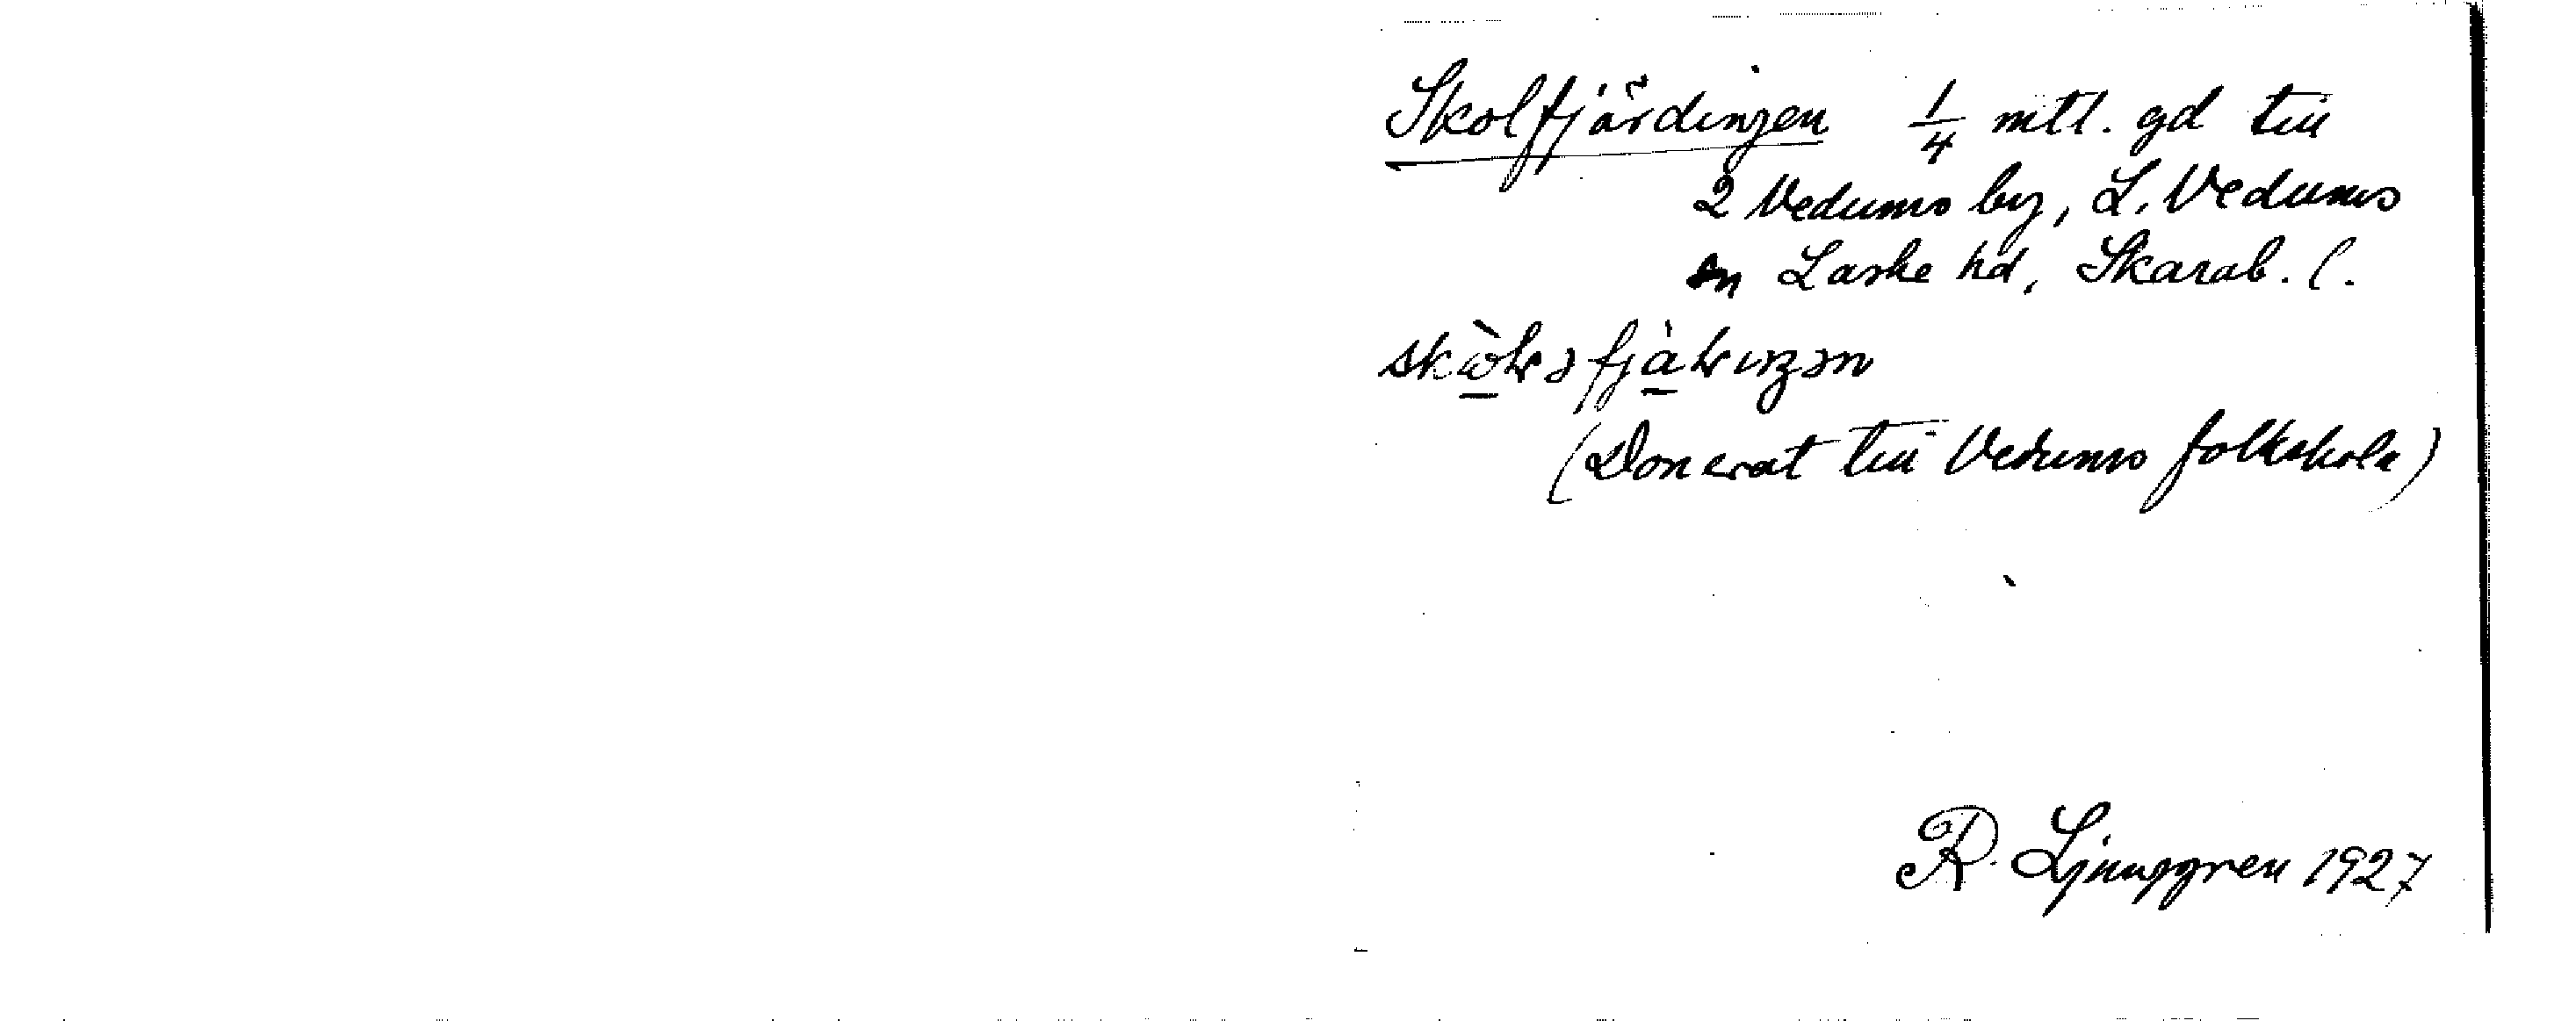 Skolfjärdingen 1/4 mtl. gd till
2 Vedums by, L. Vedums
sn Laske hd, Skarab. l.
(Donerat till Vedums folkskola)
R. Ljunggren 1927